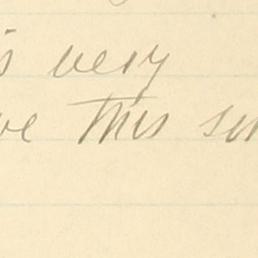 s very
ve this